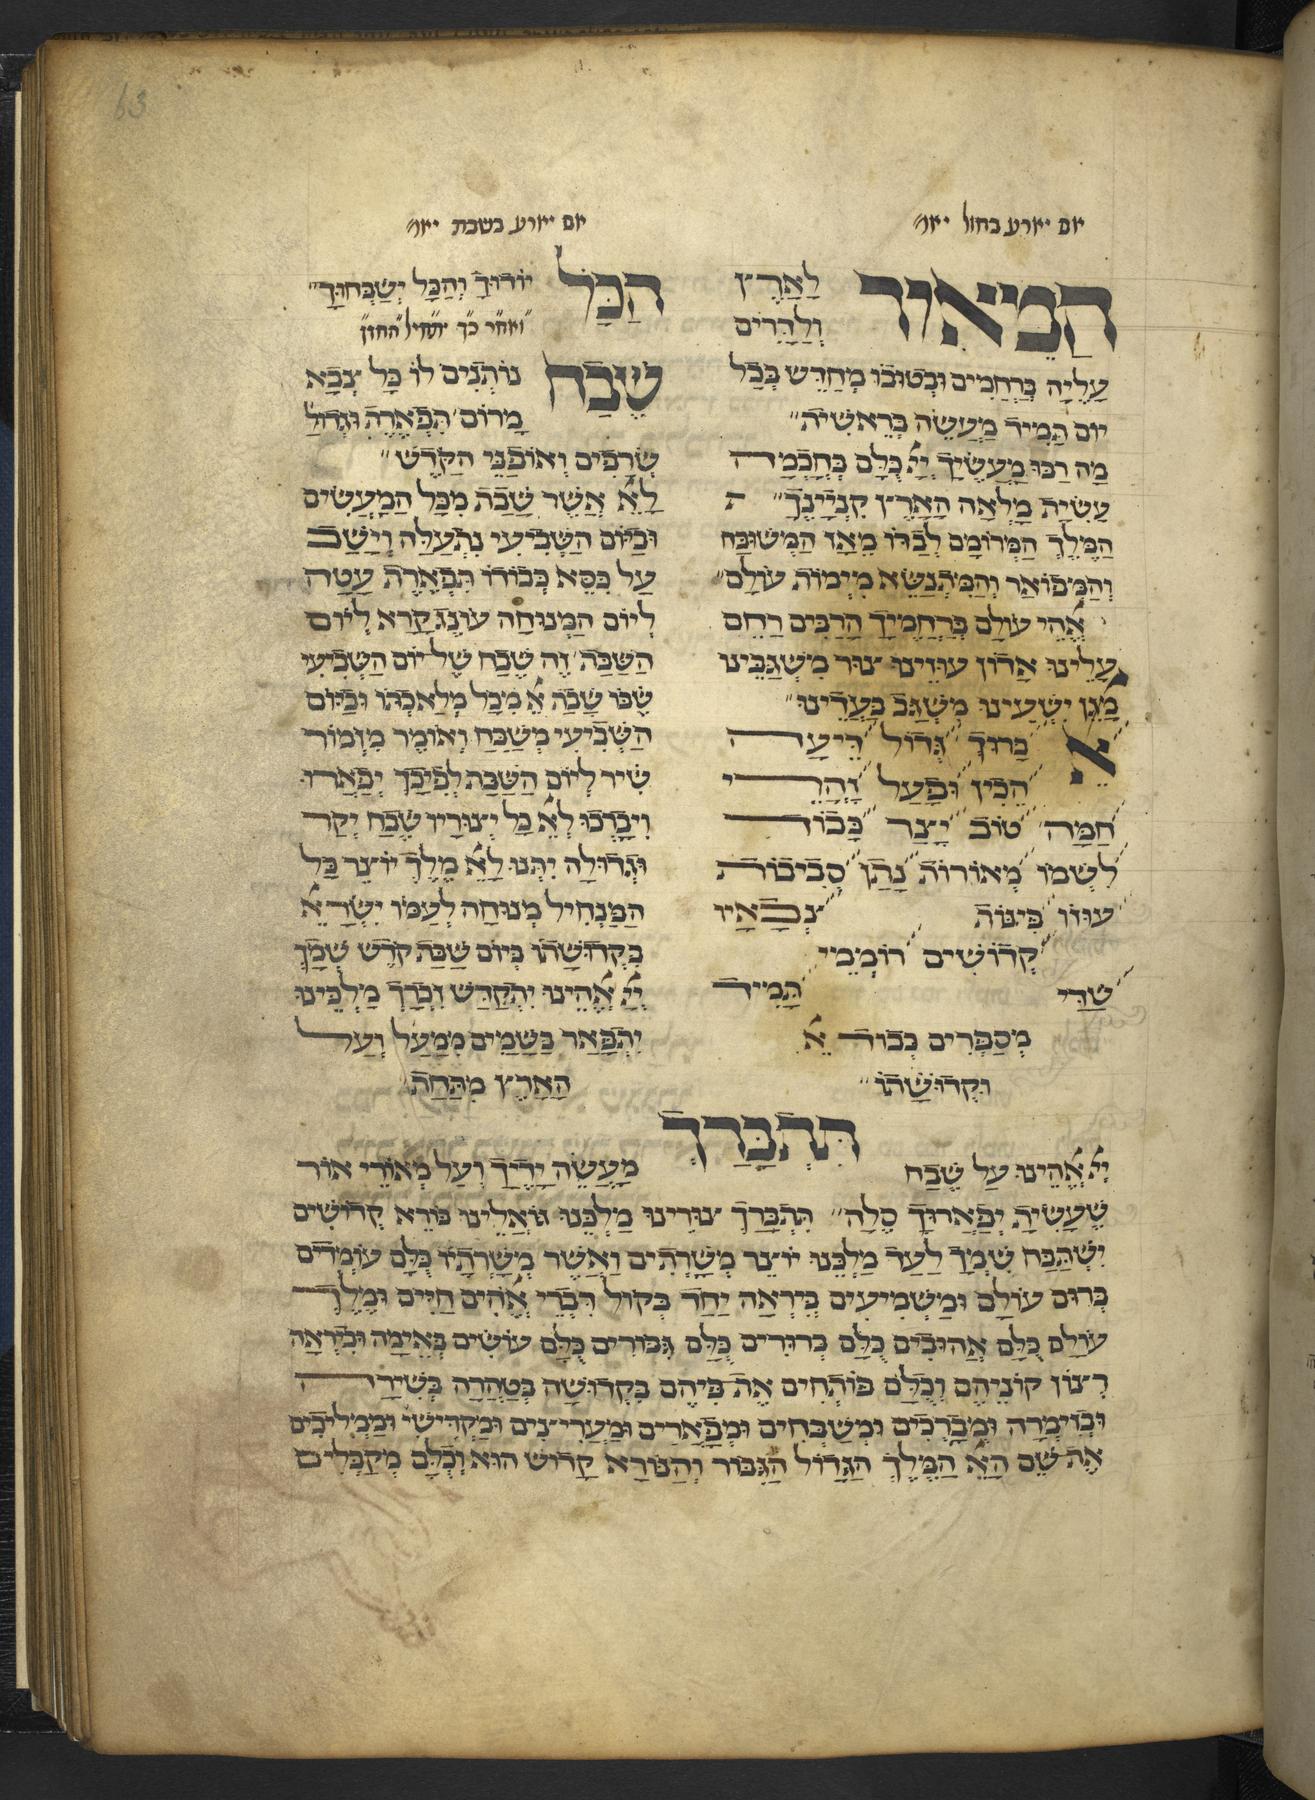 63
יום יארע בחול יאו'
הַמֵּאִיר לָאָרֶץ
וְלַדָּרִים
עָלֶיהָ בְּרַחֲמִים וּבְטוּבוֹ מְחַדֵּשׁ בְּכָל
יוֹם תָּמִיד מַעֲשֵׂה בְרֵאשִׁית
מָה רַבּוּ מַעֲשֶׂיךָ יְיָ כֻּלָּם בְּחָכְמָה
עָשִׂיתָ מָלְאָה הָאָרֶץ קִנְיָינֶךָ ה
הַמֶּלֶךְ הַמְרוֹמָם לְבַדּוֹ מֵאָז הַמְשׁוּבָּח
וְהַמְפוֹאָר וְהַמִּתְנַשֵּׂא מִימוֹת עוֹלָם
אֱלֹהֵי עוֹלָם בְּרַחֲמֶיךָ הָרַבִּים רַחֵם
עָלֵינוּ אֲדוֹן עוּזֵּינוּ צוּר מִשְׂגַּבֵּינוּ
מָגֵן יִשְׁעֵינוּ מִשְׂגָּב בַּעֲדֵינוּ
אֵל בָּרוּךְ גְּדוֹל דֵּיעָה
הֵכִין וּפָעַל זָהֳרֵי
חַמָּה טוֹב יָצַר כָּבוֹד
לִשְׁמוֹ מְאוֹרוֹת נָתַן סְבִיבוֹת
עוּזּוֹ פִּינּוֹת צְבָאָיו
קְדוֹשִׁים רוֹמְמֵי
שַׁדַּי תָּמִיד
מְסַפְּרִים כְּבוֹד אֵל
וּקְדוּשָּׁתוֹ
יום יארע בשבת יאו'
הַכֹּל יוֹדוּךָ וְהַכֹּל יְשַׁבְּחוּךָ
ואח"ר כ"ך יתחיל החזן
שֶׁבַח נוֹתְנִים לוֹ כָּל צְבָא
מָרוֹם תִּפְאֶרֶת וּגְדוּלָּ'
שְׂרָפִים וְאוֹפַנֵּי הַקֹּדֶשׁ
לָאֵל אֲשֶׁר שָׁבַת מִכָּל הַמַּעֲשִׂים
וּבַיּוֹם הַשְּׁבִיעִי נִתְעַלָּה וְיָשַׁב
עַל כִּסֵּא כְבוֹדוֹ תִּפְאֶרֶת עָטָה
לְיוֹם הַמְּנוּחָה עוֹנֶג קָרָא לְיוֹם
הַשַּׁבָּת זֶה שֶׁבַח שֶׁל יוֹם הַשְּׁבִיעִי
שֶׁבּוֹ שָׁבַת אֵל מִכָּל מְלַאכְתּוֹ וּבַיּוֹם
הַשְּׁבִיעִי מְשַׁבֵּחַ וְאוֹמֵר מִזְמוֹר
שִׁיר לְיוֹם הַשַּׁבָּת לְפִיכָךְ יְפָאֲרוּ
וִיבָרְכוּ לְאֵל כָּל יְצוּרָיו שֶׁבַח יְקָר
וּגְדוּלָּה יִתְּנוּ לָאֵל מֶלֶךְ יוֹצֵר כֹּל
הַמַּנְחִיל מְנוּחָה לְעַמּוֹ יִשְׂרָאֵל
בִּקְדוּשָּׁתוֹ בְּיוֹם שַׁבַּת קֹדֶשׁ שִׁמְךָ
יְיָ אֱלֹהֵינוּ יִתְקַדַּשׁ וְזִכְרְךָ מַלְכֵּינוּ
יִתְפָּאַר בַּשָּׁמַיִם מִמַּעַל וְעַל
הָאָרֶץ מִתָּחַת
תִּתְבָּרַךְ
יְיָ אֱלֹהֵינוּ עַל שֶׁבַח מַעֲשֵׂה יָדֶיךָ וְעַל מְאוֹרֵי אוֹר
שֶׁעָשִׂיתָ יְפָאֲרוּךָ סֶלָה תִּתְבָּרַךְ צוּרֵינוּ מַלְכֵּנוּ וְגוֹאֲלֵינוּ בּוֹרֵא קְדוֹשִׁים
יִשְׁתַּבַּח שִׁמְךָ לָעַד מַלְכֵּנוּ יוֹצֵר מְשָׁרְתִים וַאֲשֶׁר מְשָׁרְתָיו כֻּלָּם עוֹמְדִים
בְּרוּם עוֹלָם וּמַשְׁמִיעִים בְּיִרְאָה יַחַד בְּקוֹל דִּבְרֵי אֱלֹהִים חַיִּים וּמֶלֶךְ
עוֹלָם כֻּלָּם אֲהוּבִים כֻּלָּם בְּרוּרִים כֻּלָּם גִּבּוֹרִים כֻּלָּם עוֹשִׂים בְּאֵימָה וּבְיִרְאָה
רְצוֹן קוֹנֵיהֶם וְכֻלָּם פּוֹתְחִים אֶת פִּיהֶם בִּקְדוּשָּׁה בְּטָהֳרָה בְּשִׁירָה
וּבְזִימְרָה וּמְבָרְכִים וּמְשַׁבְּחִים וּמְפָאֲרִים וּמַעֲרִיצִים וּמַקְדִּישִׁי' וּמַמְלִיכִים
אֶת שֵׁם הָאֵל הַמֶּלֶךְ הַגָּדוֹל הַגִּבּוֹר וְהַנּוֹרָא קָדוֹשׁ הוּא וְכֻלָּם מְקַבְּלִים